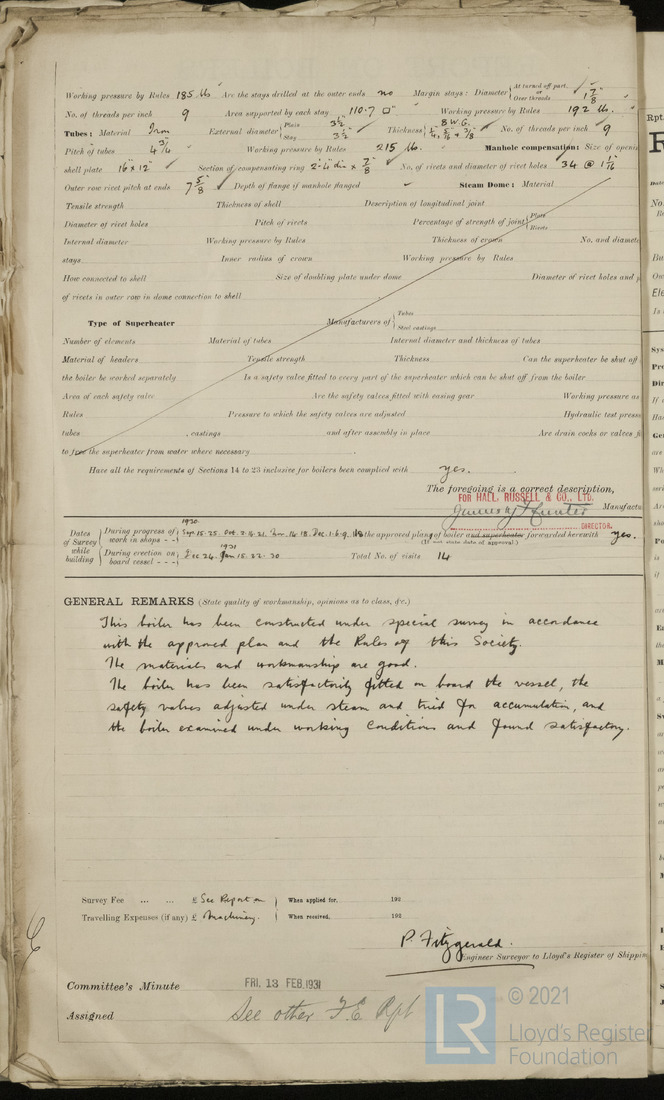 Working pressure by Rules 185 lbs Are the stays drilled at the outer ends no Margin stays: Diameter { At turned off part, or Over threads 1 7/8"
No. of threads per inch 9 Area supported by each stay 110.7 □" Working pressure by Rules 192 lb.
Tubes: Material Iron External diameter { Plain 3 1/2" Stay 3 1/2" Thickness { 8 W.G. 1/4, 5/16 & 3/8" No. of threads per inch 9
Pitch of tubes 4 3/4" Working pressure by Rules 215 lb. Manhole compensation: Size of openi
shell plate 16" x 12" Section of compensating ring 2'-4" dia x 7/8" No. of rivets and diameter of rivet holes 34 @ 1 1/16"
Outer row rivet pitch at ends 7 5/8" Depth of flange if manhole flanged Steam Dome: Material
Tensile strength Thickness of shell Description of longitudinal joint
Diameter of rivet holes Pitch of rivets Percentage of strength of joint { Plate Rivets
Internal diameter Working pressure by Rules Thickness of crown No. and diamete
stays Inner radius of crown Working pressure by Rules
How connected to shell Size of doubling plate under dome Diameter of rivet holes and p
of rivets in outer row in dome connection to shell
Type of Superheater Manufacturers of { Tubes Steel castings
Number of elements Material of tubes Internal diameter and thickness of tubes
Material of headers Tensile strength Thickness Can the superheater be shut off
the boiler be worked separately Is a safety valve fitted to every part of the superheater which can be shut off from the boiler
Area of each safety valve Are the safety valves fitted with easing gear Working pressure as
Rules Pressure to which the safety valves are adjusted Hydraulic test press
tubes , castings and after assembly in place Are drain cocks or valves fi
to free the superheater from water where necessary
Have all the requirements of Sections 14 to 23 inclusive for boilers been complied with yes.
The foregoing is a correct description,
FOR HALL, RUSSELL & CO., LTD.
Manufactu
DIRECTOR.
Dates of Survey while building { During progress of work in shops - - { 1930 Sep. 15. 25. Oct. Nov. 14. 18. Dec. 1. 6. 9. the approved plan of boiler and superheater forwarded herewith yes.
(If not state date of approval.)
During erection on board vessel - - - { Dec 24. 1931 Jan 15. 22. 30 Total No. of visits 14
GENERAL REMARKS (State quality of workmanship, opinions as to class, &c.)
This boiler has been constructed under special survey in accordance
with the approved plan and the Rules of this Society.
The materials and workmanship are good.
The boiler has been satisfactorily fitted on board the vessel, the
safety valves adjusted under steam and tried for accumulation, and
the boiler examined under working conditions and found satisfactory.
Survey Fee ... ... £ See Report on When applied for, 192
Travelling Expenses (if any) £ Machinery. When received, 192
P. Fitzgerald.
Engineer Surveyor to Lloyd's Register of Shippin
Committee's Minute FRI. 13 FEB. 1931
Assigned See other F.E. Rpt
LR © 2021
Lloyd's Register
Foundation